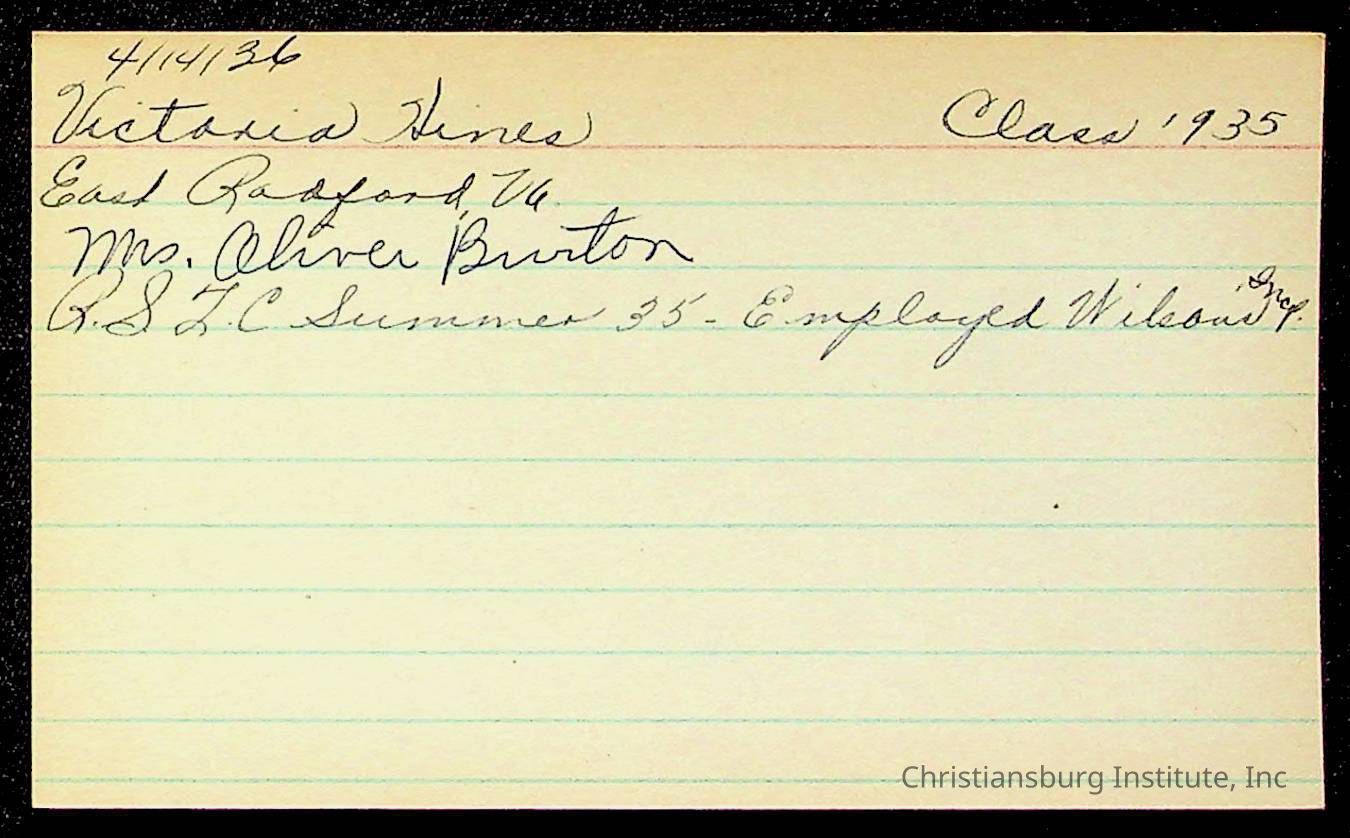 4/14/36
Victoria Hines Class 1935
East Radford, Va.
Mrs. Oliver Burton
R.S.T.C Summer 35 - Employed Wilson's Incp.
Christiansburg Institute, Inc